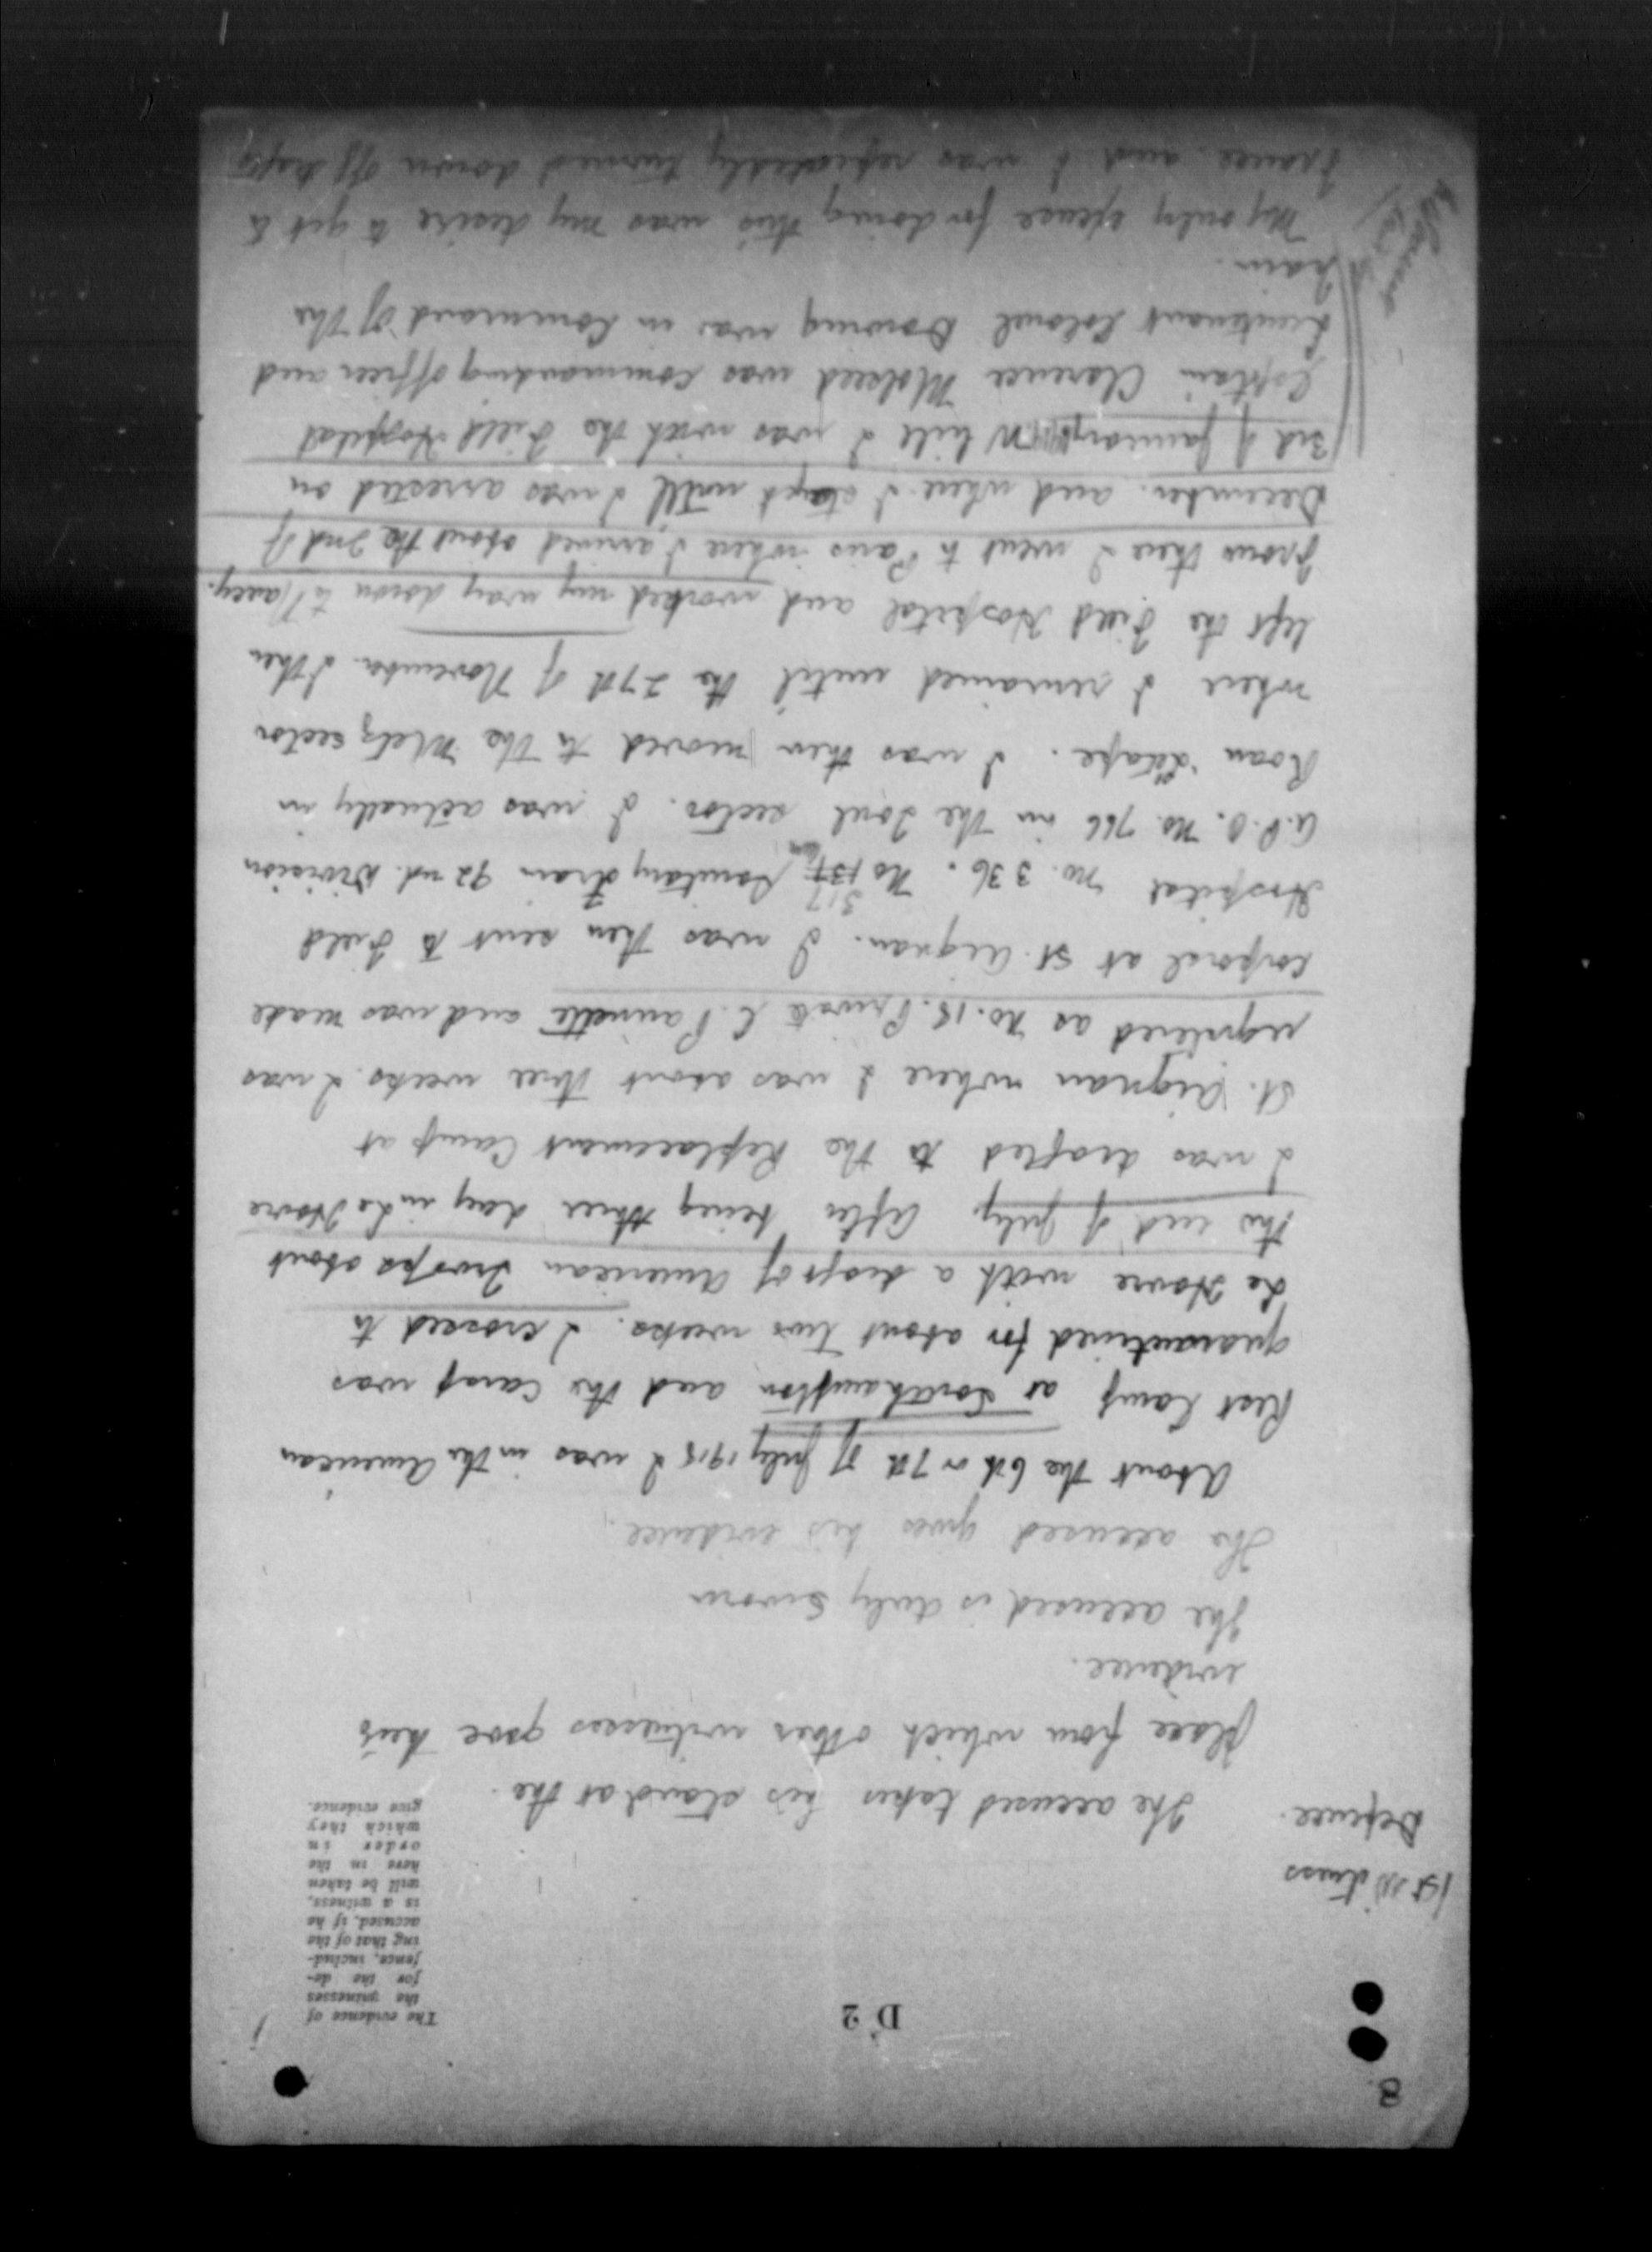 8
D 2
The evidence of
the witnesses
for the de-
fence, includ-
ing that of the
accused, if he
is a witness,
will be taken
here in the
order in
which they
give evidence.
1st Witness
Defence.
The accused takes his stand at the
place from which other witnesses gave their
evidence.
The accused is duly sworn
The accused gives his evidence.
About the 6th or 7th of July 1918 I was in the American
Rest Camp at Southampton and the camp was
quarantined for about two weeks. I crossed to
Le Havre with a draft of American Troops about
the end of July. After being three day in Le Havre
I was drafted to the Replacement Camp at
St. Aignan where I was about three weeks. I was
registered as No. 18. Private C. and was made
corporal at St. Aignan. I was then sent to Field
Hospital No. 336. No 317 Sanitary Train 92nd. Division
A.P.O. No. 766 in the Toul sector. I was actually in
Roan . I was then moved to the Metz sector
where I remained until the 27th of November. I then
left the Field Hospital and worked my way down to Nancy.
from there I went to Paris where I arrived about the 2nd of
December. and where I stayed until I was arrested on
3rd of January. While I was with the Field Hospital
Captain Clarence was commanding officer and
Lieutenant Colonel Downing was in Command of the
train.
My only for doing this was my desire to get to
France and I was repeatedly turned down off drafts